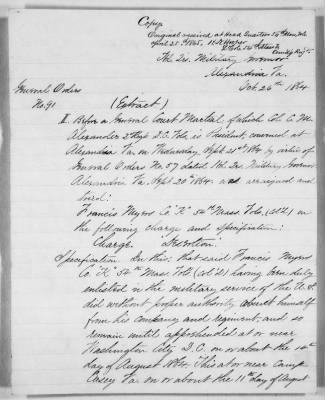 Copy
Original received at Head Quarters 54th Mass Vols
April 25th 1865.
Hd Qrs. Military Governor
Alexandria Va.
Oct. 26th 1864
General Orders
No. 91
(Extract)
II. Before a General Court Martial of which Col. C. M.
Alexander 2d Regt D.C. Vols, is President, convened at
Alexandria Va. on Wednesday Sept. 21st 1864 by virtue of
General Orders No. 57 dated Hd. Qrs. Military Governor
Alexandria Va. Sept 20th 1864. was arraigned and
tried:
Francis Myers Co. "K" 54th Mass Vols. (Cold) on
the following charge and specification:
Charge. Desertion.
Specification. In this; that said Francis Myers
Co. K 54th Mass Vols (Cold) having been duly
enlisted in the military service of the U.S.
did without proper authority absent himself
from his company and regiment, and so
remain until apprehended at or near
Washington City D.C. on or about the
day of August 1864. This at or near Camp
Casey Va on or about the 11th day of August